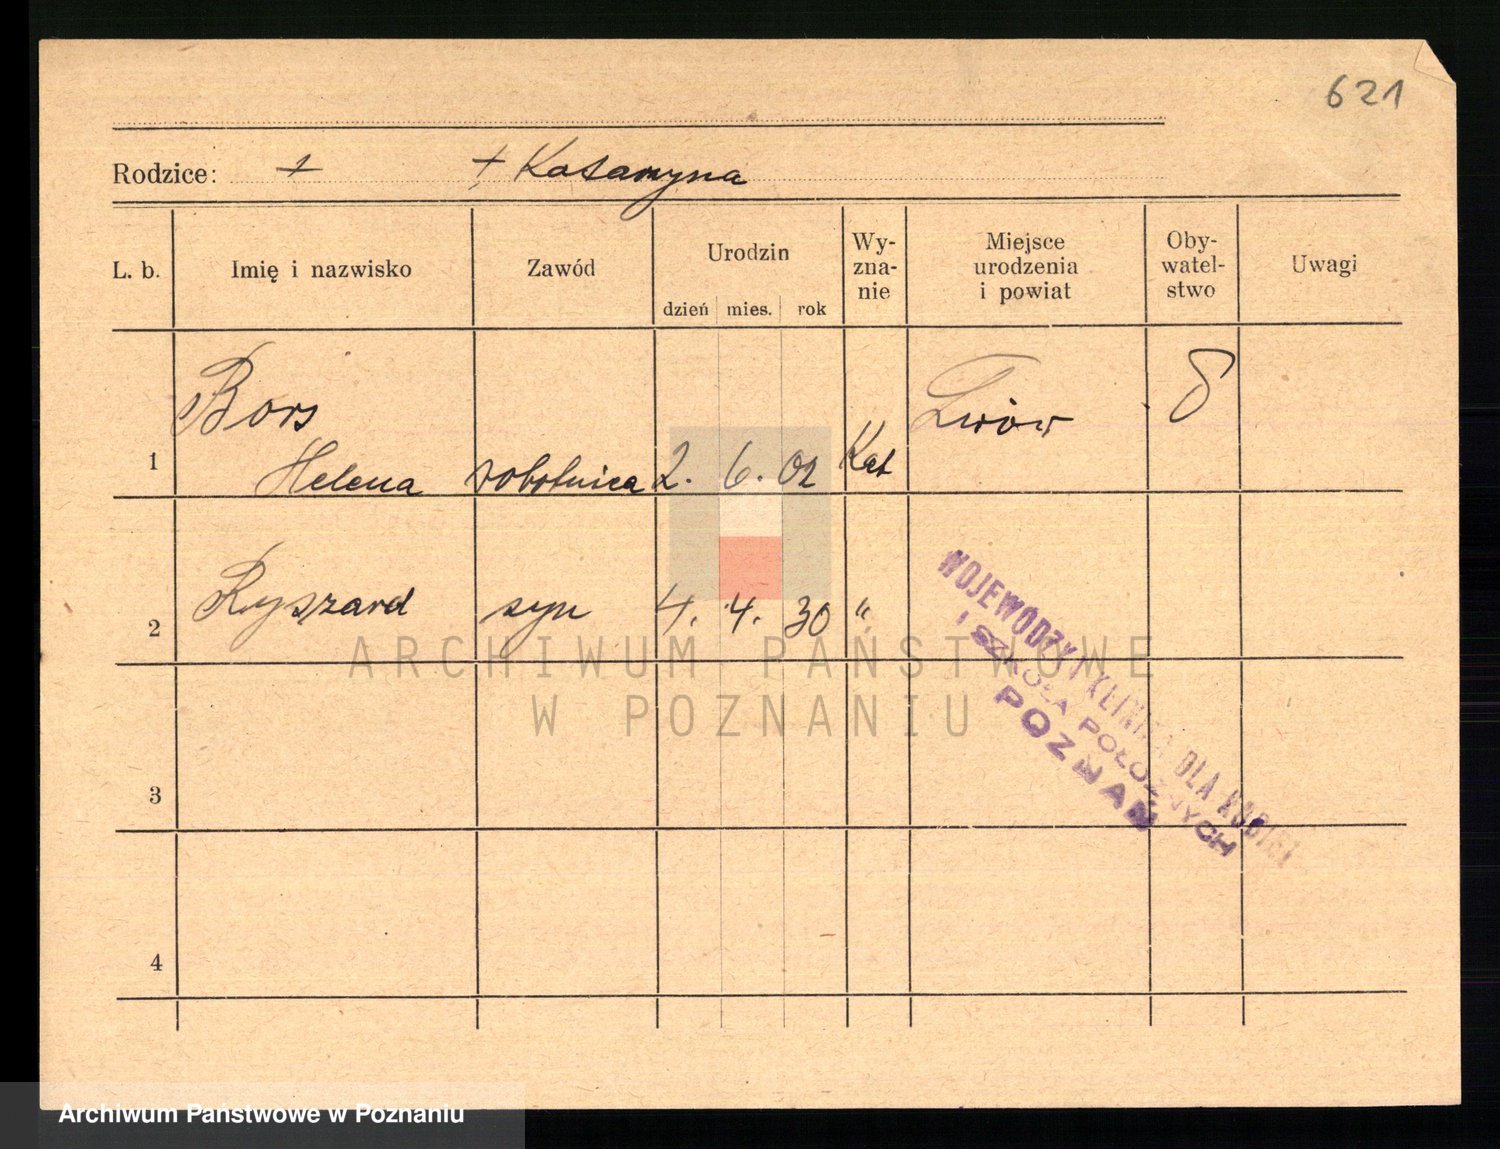 621
Rodzice: + + Katarzyna
L. b. Imię i nazwisko Zawód Urodzin dzień mies. rok Wy-zna-nie Miejsce urodzenia i powiat Oby-watel-stwo Uwagi
Bors Lwów
1 Helena robotnica 2. 6. 02 Kat
2 Ryszard syn 4. 4. 30 "
WOJEWÓDZKA KLINIKA DLA KOBIET
I SZKOŁA POŁOŻNYCH
POZNAŃ
ARCHIWUM PAŃSTWOWE
W POZNANIU
3
4
Archiwum Państwowe w Poznaniu